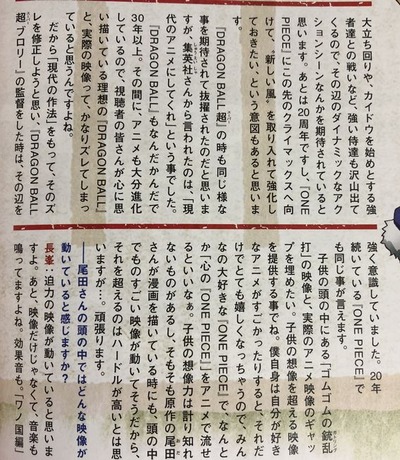 大立ち回りや、カイドウを始めとする強
者達との戦いなど、強い侍達も沢山出て
くるので、その辺のダイナミックなアク
ションシーンなんかを期待されていると
思います。あとは20周年ですし、『ONE
PIECE』にこの先のクライマックスへ向
けて、“新しい風”を取り入れて強化し
ておきたい、という意図もあると思いま
す。
『DRAGON BALL超』の時も同じ様な
事を期待されて抜擢されたのだと思いま
すが、集英社さんから言われたのは、「現
代のアニメにしてくれ」という事でした。
『DRAGON BALL』もなんだかんだで
30年以上。その間に、アニメも大分進化
しているので、視聴者の皆さんが心に思
い描いている理想の『DRAGON BALL』
と、実際の映像って、かなりズレてしまっ
ていると思うんですよね。
だから「現代の作法」をもって、そのズ
レを修正しようと思い、『DRAGON BALL
超 ブロリー』の監督をした時は、その辺を
強く意識していました。20年
続いている『ONE PIECE』で
も同じ事が言えます。
子供の頭の中にある、「ゴムゴムの銃乱
打」の映像と、実際のアニメ映像のギャッ
プを埋めたい。子供の想像を超える映像
を提供する事でね。僕自身は自分が好き
なアニメがすごかったりすると、それだ
けでとても嬉しくなっちゃうので、みん
なの大好きな『ONE PIECE』で、なんと
か“心の『ONE PIECE』”をアニメで流せ
るといいなぁ。子供の想像力は計り知れ
ないものがあるし、そもそも原作の尾田
さんが漫画を描いている時にも、頭の中
でものすごい映像が動いてそうだから、
それを超えるのはハードルが高いとは思
いますが…。頑張ります。
──尾田さんの頭の中ではどんな映像が
動いていると感じますか?
長峯:迫力の映像が動いていると思いま
すよ。あと、映像だけじゃなくて、音楽も
鳴ってますよね。効果音も。「ワノ国編」